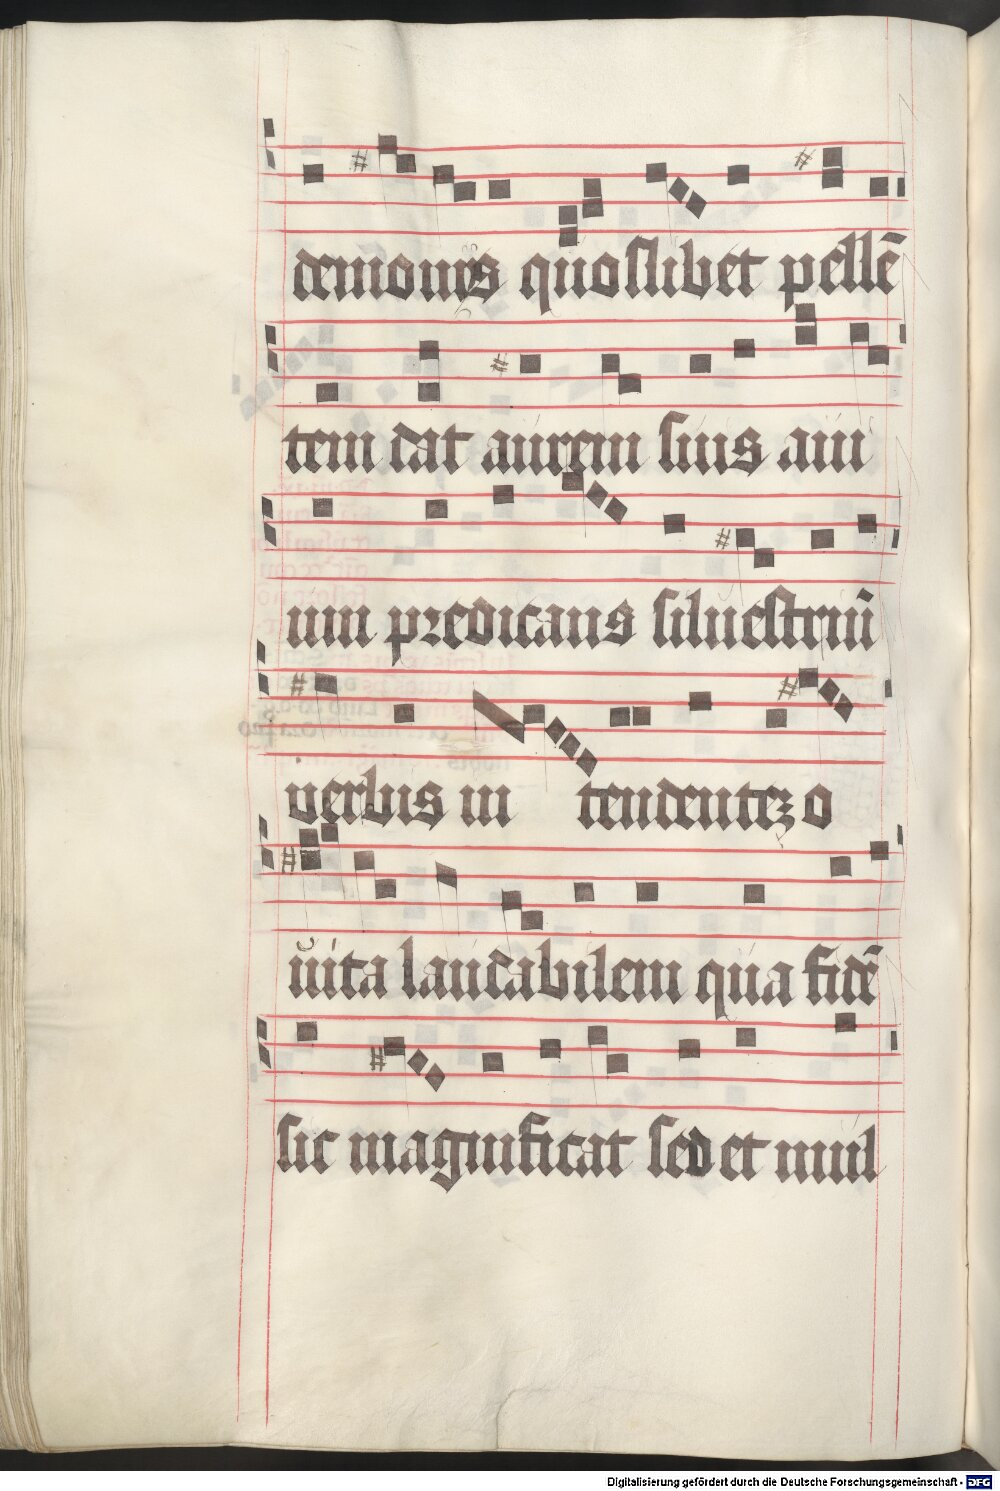 demones quoslibet pellē
tem dat aurem suis aui
um predicans siluestriū
verbis in tendentez o
vita laudabilem qua fidē
sic magnificat sed et mul
Digitalisierung gefördert durch die Deutsche Forschungsgemeinschaft - DFG